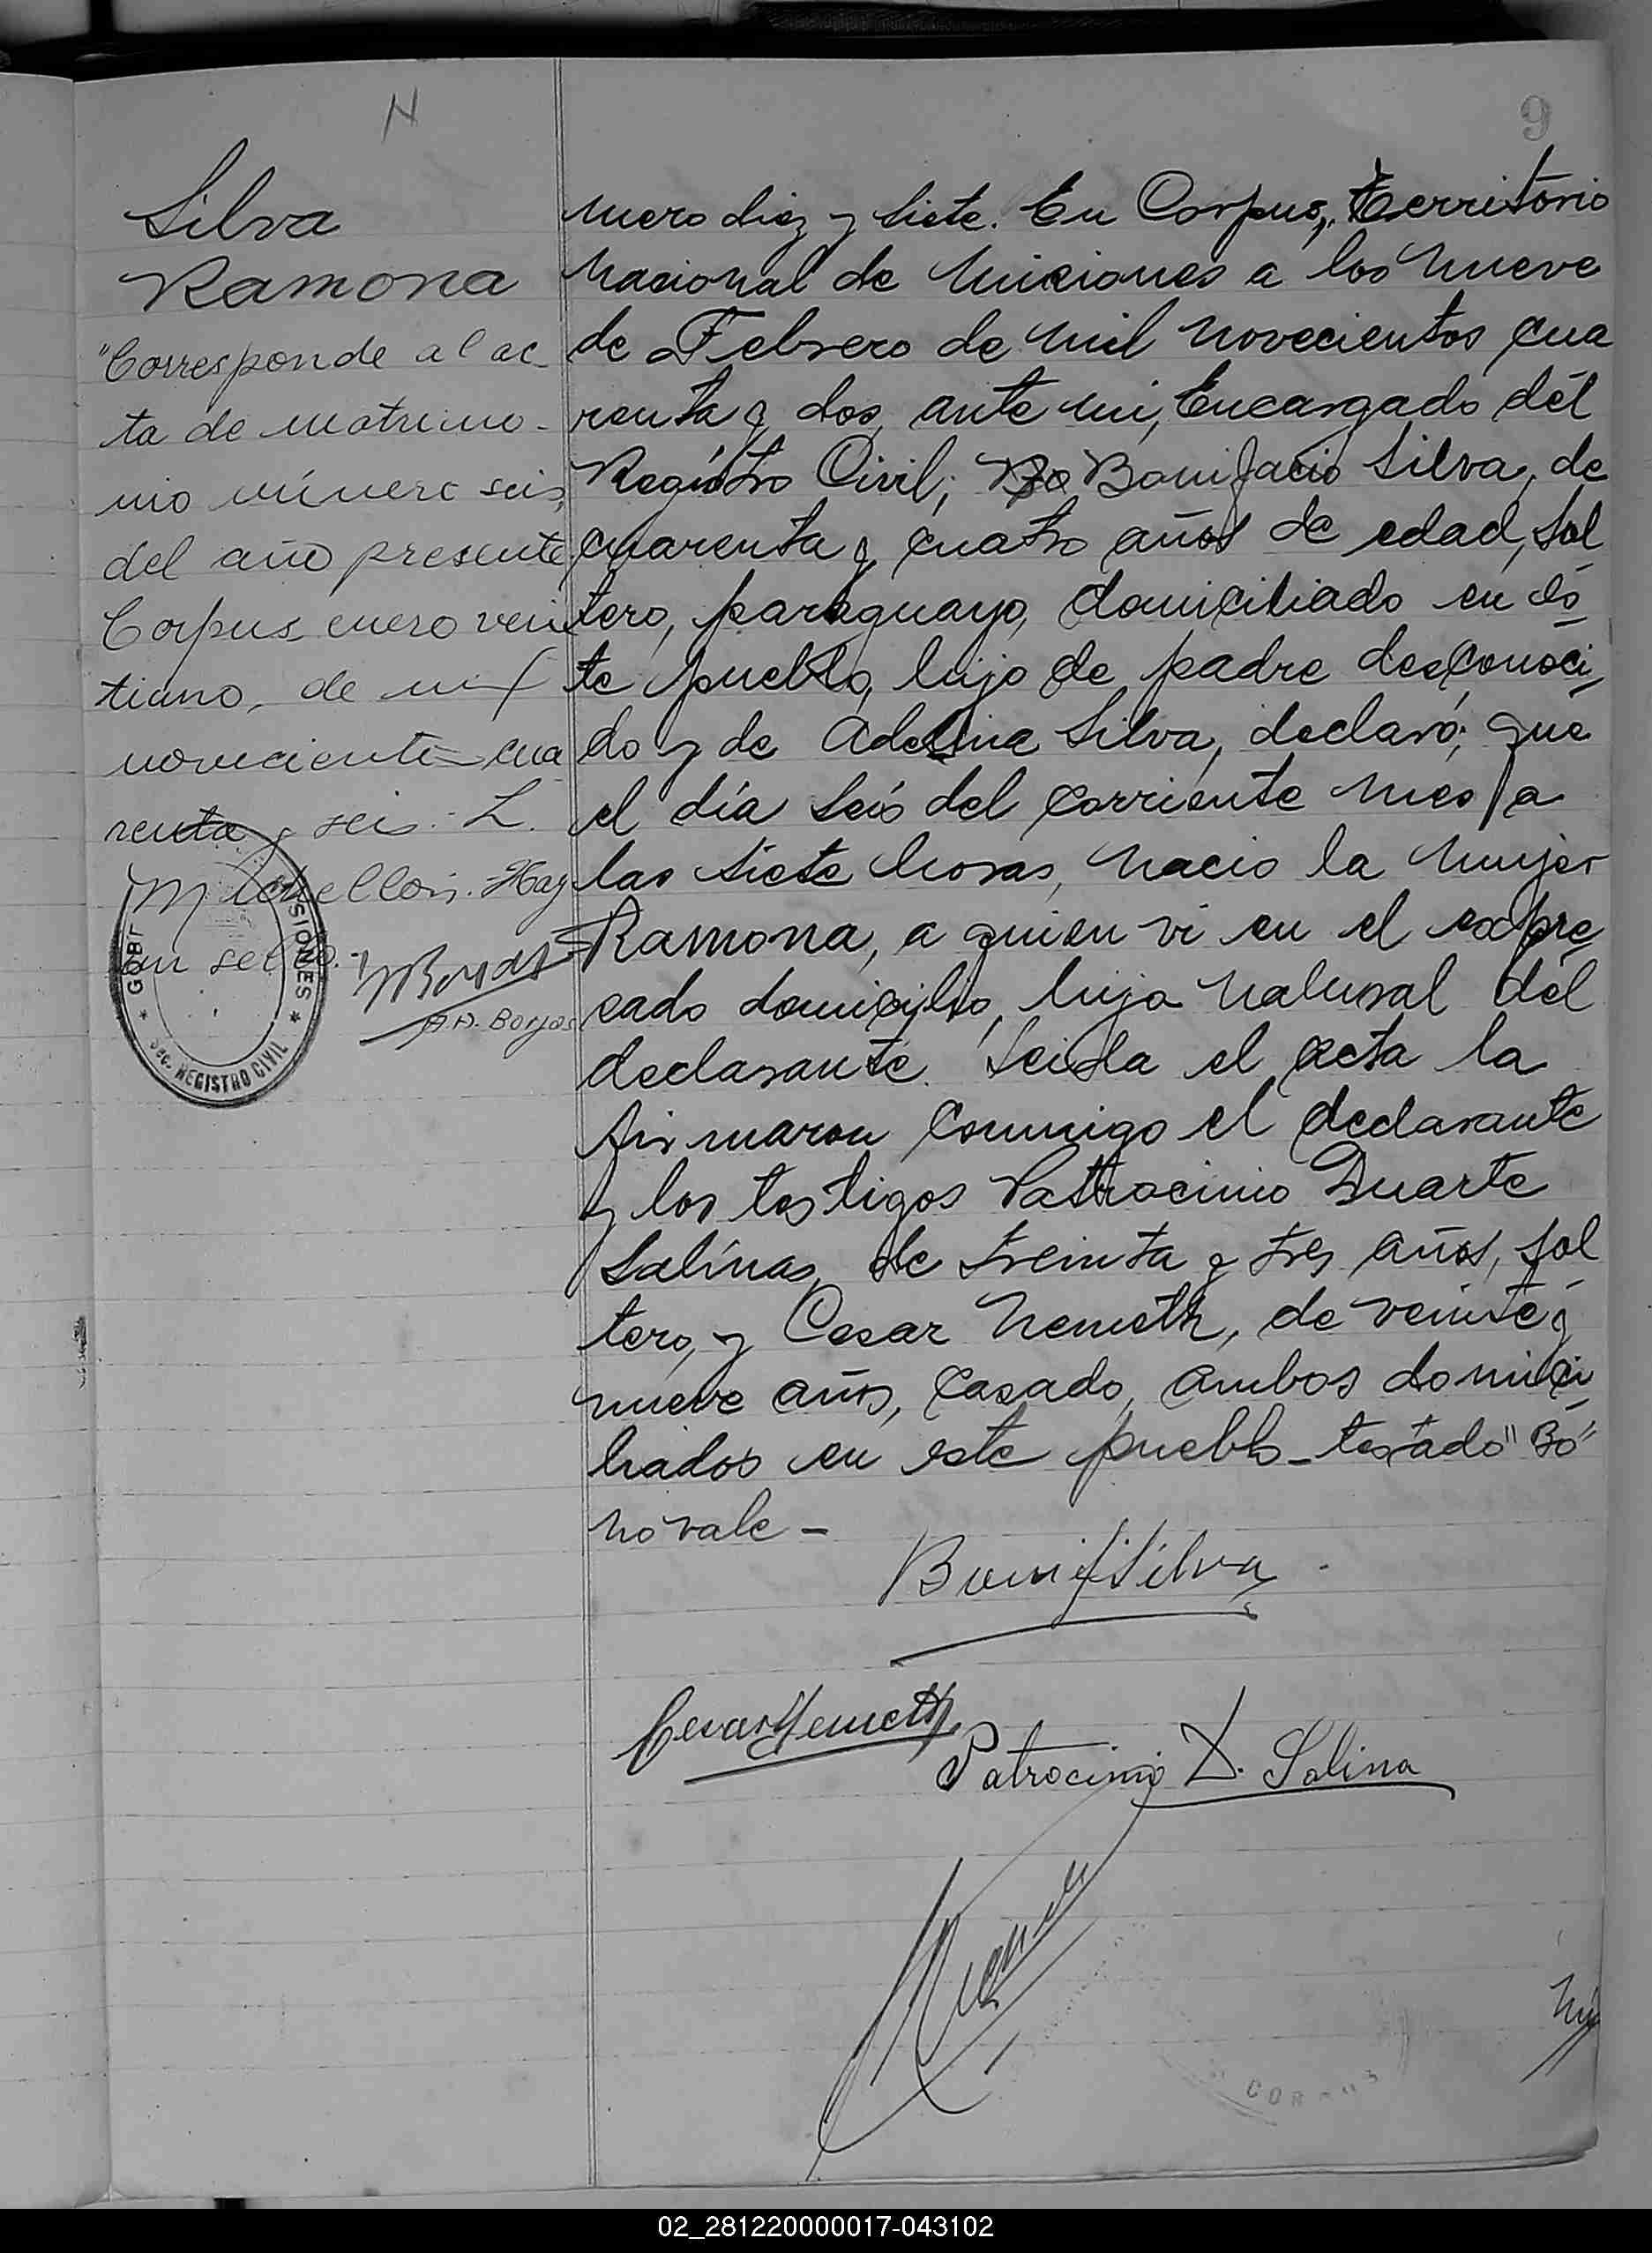 N
9
Silva
Ramona
"Corresponde al ac
ta de matrimo-
nio número seis,
del año presente
Corpus enero vein
tiuno, de mil
novecientos cua
renta y seis.- L.
Hay
un sello.-
A.A. Borjas
GOBN SIONES
* SEC. REGISTRO CIVIL *
mero diez y siete. En Corpus, Territorio
Nacional de Misiones a los nueve
de Febrero de mil novecientos cua
renta y dos, ante mi, Encargado del
Registro Civil; Bo Bonifacio Silva, de
cuarenta y cuatro años de edad, sol
tero, paraguayo, domiciliado en és
te pueblo, hijo de padre desconoci
do y de Adelina Silva, declaró; que
el día seis del corriente mes, a
las siete horas, nacio la mujer
Ramona, a quien vi en el expre
cado domicilio, hija natural del
declarante. Leida el acta la
firmaron conmigo el declarante
y los testigos Patrocinio Duarte
Salinas, de treinta y tres años, sol
tero, y Cesar Nemeth, de veinte y
nueve años, casado, ambos domici
liados en este pueblo - testado "Bo"
no vale -
Bonif Silva
Cesar Nemeth
Patrocinio D. Salina
CORPUS
02_281220000017-043102